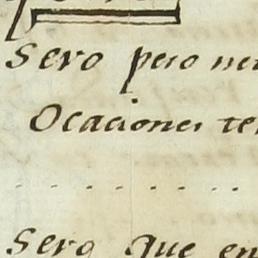 Sero pero
Ocaciones
Sero que en